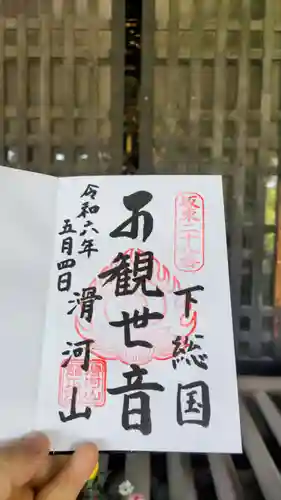 坂東二十八番
下総国
正観世音
滑河山
令和六年
五月四日